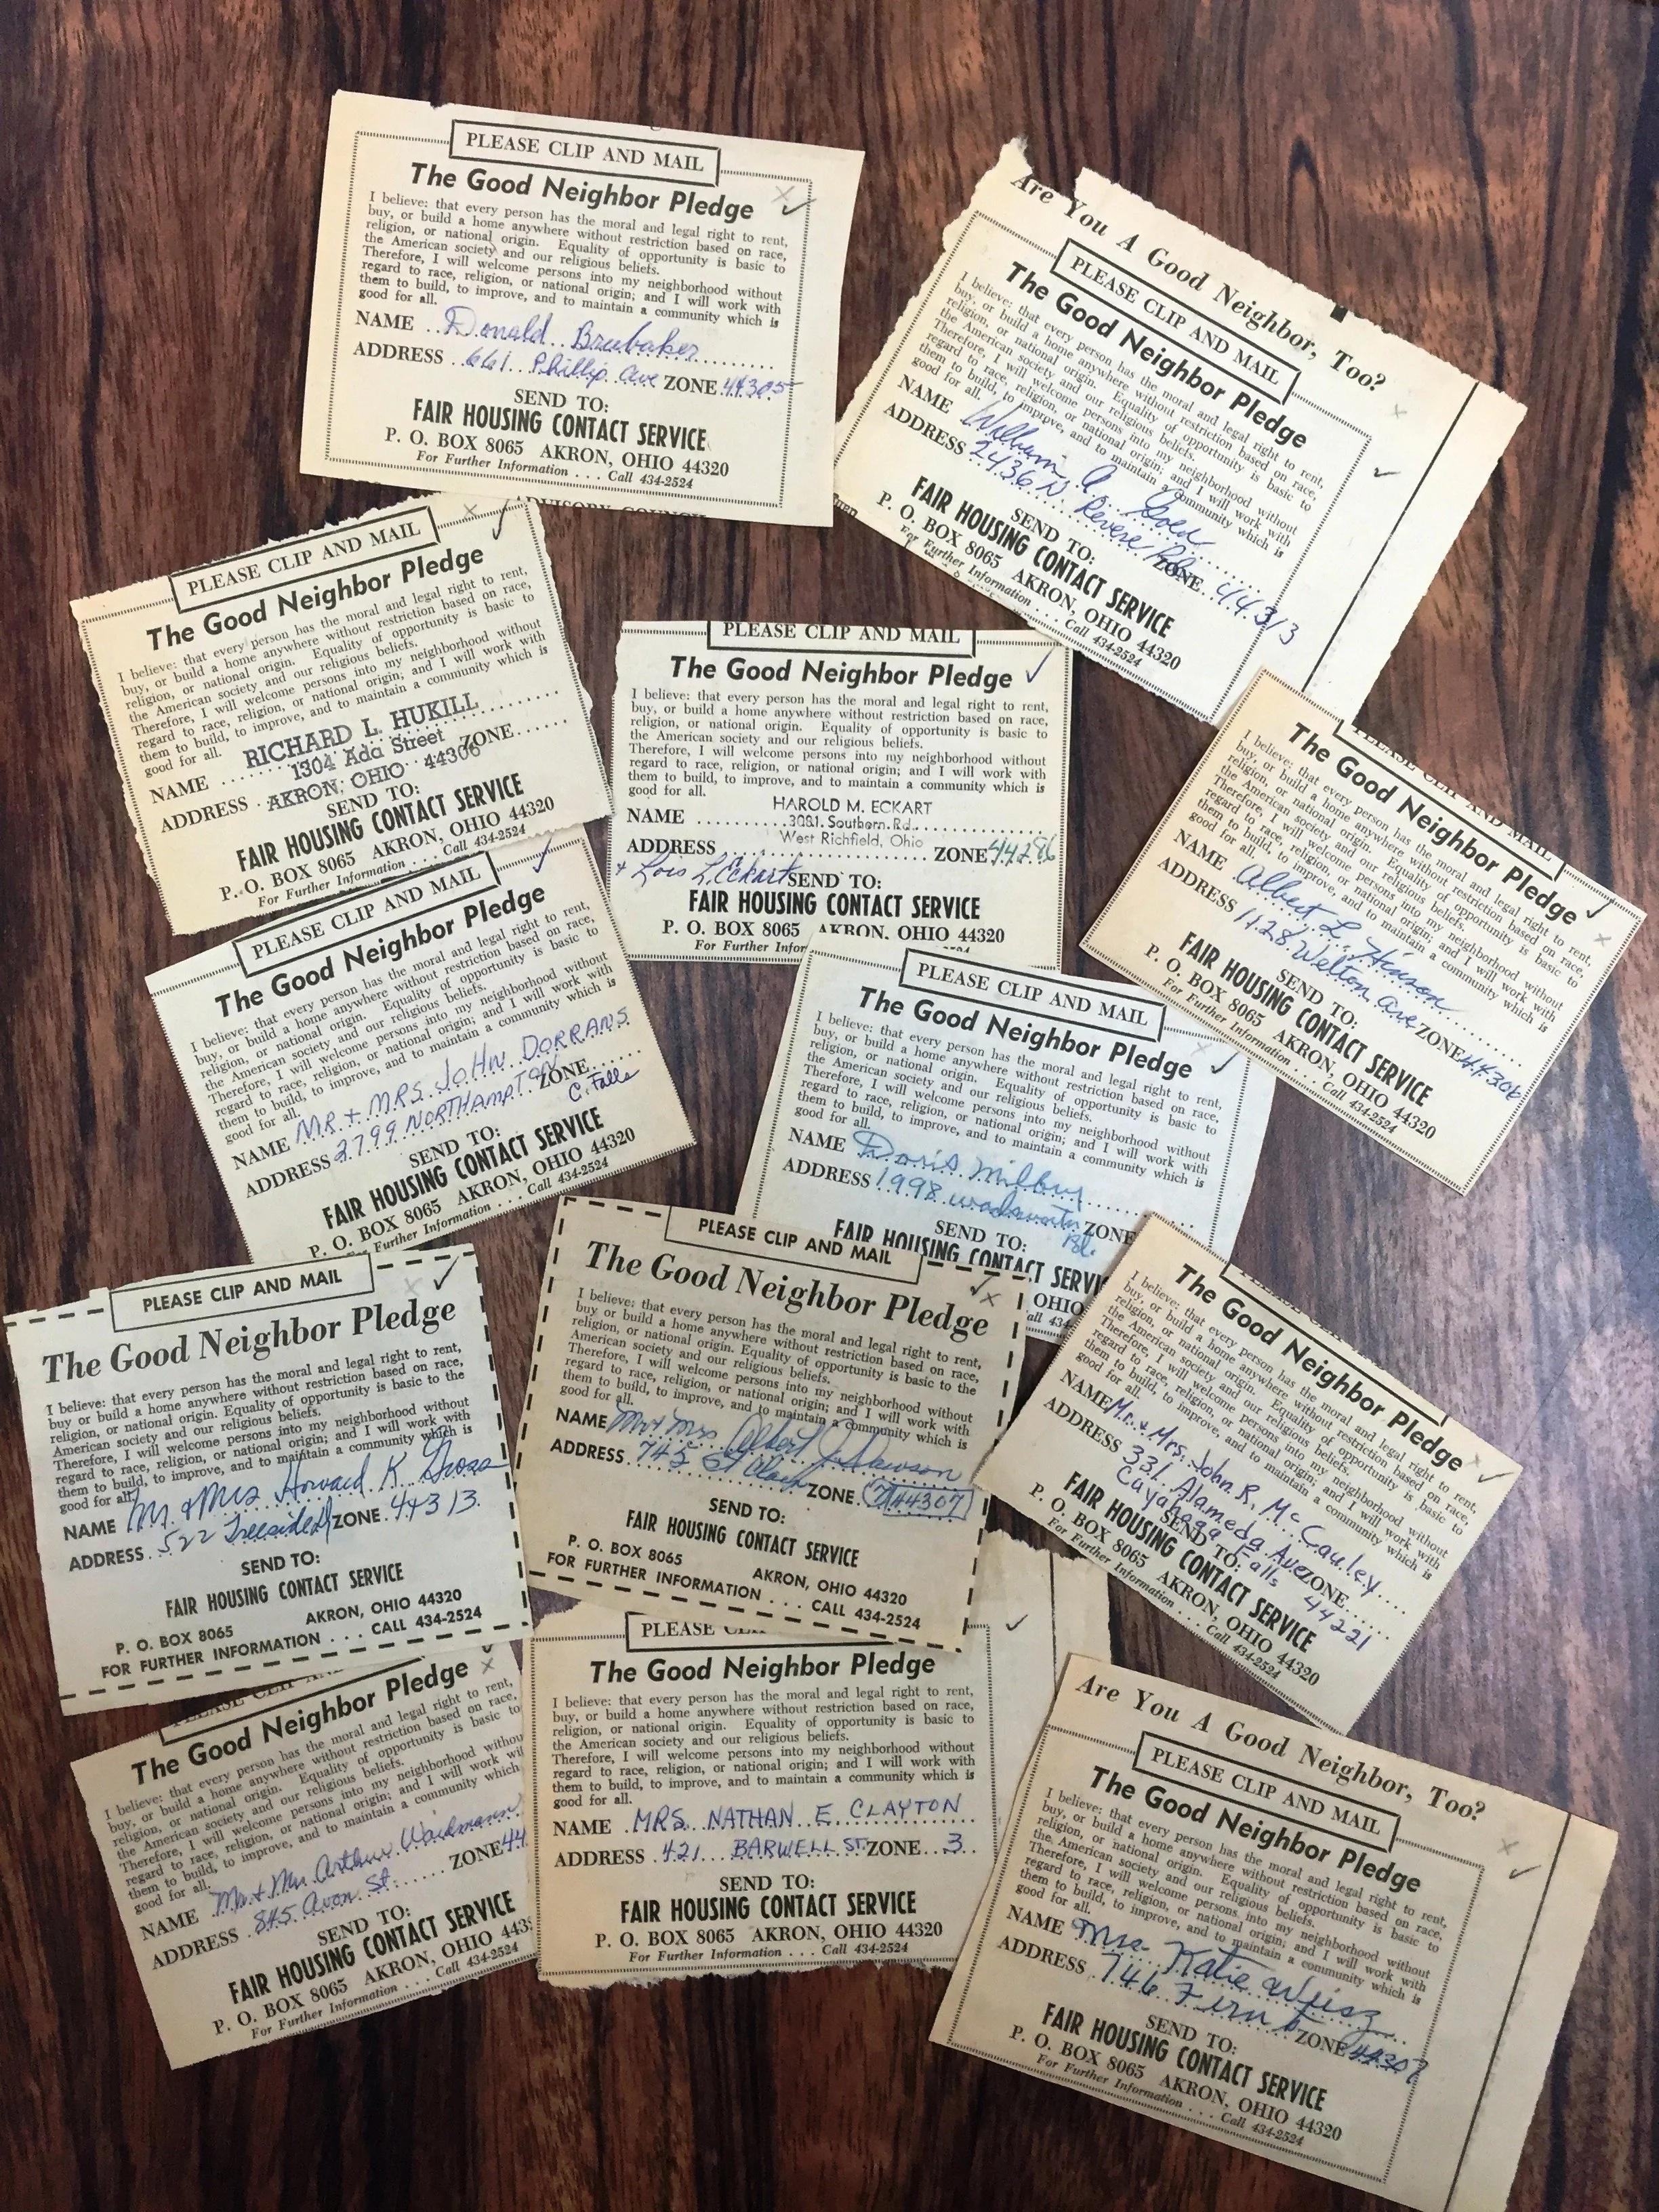 PLEASE CLIP AND MAIL
The Good Neighbor Pledge
I believe: that every person has the moral and legal right to rent,
buy, or build a home anywhere without restriction based on race,
religion, or national origin. Equality of opportunity is basic to
the American society and our religious beliefs.
Therefore, I will welcome persons into my neighborhood without
regard to race, religion, or national origin; and I will work with
them to build, to improve, and to maintain a community which is
good for all.
NAME Donald Brubaker
ADDRESS 661 Phillip Ave ZONE 44305
SEND TO:
FAIR HOUSING CONTACT SERVICE
P. O. BOX 8065 AKRON, OHIO 44320
For Further Information . . . Call 434-2524
ADVISORY COUNCIL
Are You A Good Neighbor, Too?
PLEASE CLIP AND MAIL
The Good Neighbor Pledge
I believe: that every person has the moral and legal right to rent,
buy, or build a home anywhere without restriction based on race,
religion, or national origin. Equality of opportunity is basic to
the American society and our religious beliefs.
Therefore, I will welcome persons into my neighborhood without
regard to race, religion, or national origin; and I will work with
them to build, to improve, and to maintain a community which is
good for all.
NAME William A. Gold
ADDRESS 2436 N. Revere Rd. ZONE 44313
SEND TO:
FAIR HOUSING CONTACT SERVICE
P. O. BOX 8065 AKRON, OHIO 44320
For Further Information . . . Call 434-2524
PLEASE CLIP AND MAIL
The Good Neighbor Pledge
I believe: that every person has the moral and legal right to rent,
buy, or build a home anywhere without restriction based on race,
religion, or national origin. Equality of opportunity is basic to
the American society and our religious beliefs.
Therefore, I will welcome persons into my neighborhood without
regard to race, religion, or national origin; and I will work with
them to build, to improve, and to maintain a community which is
good for all.
NAME RICHARD L. HUKILL
1304 Ada Street ZONE
ADDRESS AKRON, OHIO 44306
SEND TO:
FAIR HOUSING CONTACT SERVICE
P. O. BOX 8065 AKRON, OHIO 44320
For Further Information . . . Call 434-2524
PLEASE CLIP AND MAIL
The Good Neighbor Pledge
I believe: that every person has the moral and legal right to rent,
buy, or build a home anywhere without restriction based on race,
religion, or national origin. Equality of opportunity is basic to
the American society and our religious beliefs.
Therefore, I will welcome persons into my neighborhood without
regard to race, religion, or national origin; and I will work with
them to build, to improve, and to maintain a community which is
good for all.
HAROLD M. ECKART
NAME 3081 Southern Rd.
West Richfield, Ohio
ADDRESS ZONE 44286
+ Lois L. Eckart SEND TO:
FAIR HOUSING CONTACT SERVICE
P. O. BOX 8065 AKRON, OHIO 44320
For Further Infor
PLEASE CLIP AND MAIL
The Good Neighbor Pledge
I believe: that every person has the moral and legal right to rent,
buy, or build a home anywhere without restriction based on race,
religion, or national origin. Equality of opportunity is basic to
the American society and our religious beliefs.
Therefore, I will welcome persons into my neighborhood without
regard to race, religion, or national origin; and I will work with
them to build, to improve, and to maintain a community which is
good for all.
NAME Albert L Hinson
ADDRESS 1128 Welton Ave ZONE 44306
SEND TO:
FAIR HOUSING CONTACT SERVICE
P. O. BOX 8065 AKRON, OHIO 44320
For Further Information . . . Call 434-2524
PLEASE CLIP AND MAIL
The Good Neighbor Pledge
I believe: that every person has the moral and legal right to rent,
buy, or build a home anywhere without restriction based on race,
religion, or national origin. Equality of opportunity is basic to
the American society and our religious beliefs.
Therefore, I will welcome persons into my neighborhood without
regard to race, religion, or national origin; and I will work with
them to build, to improve, and to maintain a community which is
good for all.
NAME MR. + MRS. JOHN DORRANS
ADDRESS 2799 NORTHAMPTON ZONE
C. Falls
SEND TO:
FAIR HOUSING CONTACT SERVICE
P. O. BOX 8065 AKRON, OHIO 44320
For Further Information . . . Call 434-2524
PLEASE CLIP AND MAIL
The Good Neighbor Pledge
I believe: that every person has the moral and legal right to rent,
buy, or build a home anywhere without restriction based on race,
religion, or national origin. Equality of opportunity is basic to
the American society and our religious beliefs.
Therefore, I will welcome persons into my neighborhood without
regard to race, religion, or national origin; and I will work with
them to build, to improve, and to maintain a community which is
good for all.
NAME Doris Milbuy
ADDRESS 1998 Wadsworth ZONE
Rd.
SEND TO:
FAIR HOUSING CONTACT SERVI
OHIO
all 434-
PLEASE CLIP AND MAIL
The Good Neighbor Pledge
I believe: that every person has the moral and legal right to rent,
buy or build a home anywhere without restriction based on race,
religion, or national origin. Equality of opportunity is basic to the
American society and our religious beliefs.
Therefore, I will welcome persons into my neighborhood without
regard to race, religion, or national origin; and I will work with
them to build, to improve, and to maintain a community which is
good for all.
NAME Mr. & Mrs Howard K. Gross
ADDRESS 522 Treeside Dr ZONE 44313
SEND TO:
FAIR HOUSING CONTACT SERVICE
P. O. BOX 8065 AKRON, OHIO 44320
FOR FURTHER INFORMATION . . . CALL 434-2524
PLEASE CLIP AND MAIL
The Good Neighbor Pledge
I believe: that every person has the moral and legal right to rent,
buy or build a home anywhere without restriction based on race,
religion, or national origin. Equality of opportunity is basic to the
American society and our religious beliefs.
Therefore, I will welcome persons into my neighborhood without
regard to race, religion, or national origin; and I will work with
them to build, to improve, and to maintain a community which is
good for all.
NAME Mr + Mrs Albert J. Dawson
ADDRESS 745 St Clair ZONE (7) 44307
SEND TO:
FAIR HOUSING CONTACT SERVICE
P. O. BOX 8065 AKRON, OHIO 44320
FOR FURTHER INFORMATION . . . CALL 434-2524
The Good Neighbor Pledge
I believe: that every person has the moral and legal right to rent,
buy, or build a home anywhere without restriction based on race,
religion, or national origin. Equality of opportunity is basic to
the American society and our religious beliefs.
Therefore, I will welcome persons into my neighborhood without
regard to race, religion, or national origin; and I will work with
them to build, to improve, and to maintain a community which is
good for all.
NAME Mr. & Mrs. John R. McCauley
ADDRESS 331 Alameda Ave ZONE
Cuyahoga Falls 44221
SEND TO:
FAIR HOUSING CONTACT SERVICE
P. O. BOX 8065 AKRON, OHIO 44320
For Further Information . . . Call 434-2524
PLEASE CLIP AN
The Good Neighbor Pledge
I believe: that every person has the moral and legal right to rent,
buy, or build a home anywhere without restriction based on race,
religion, or national origin. Equality of opportunity is basic to
the American society and our religious beliefs.
Therefore, I will welcome persons into my neighborhood withou
regard to race, religion, or national origin; and I will work wit
them to build, to improve, and to maintain a community which
good for all.
NAME Mr. + Mrs. Arthur Waidmann
ADDRESS 845 Avon St. ZONE 44
SEND TO:
FAIR HOUSING CONTACT SERVICE
P. O. BOX 8065 AKRON, OHIO 443
For Further Information . . . Call 434-2524
PLEASE CLI
The Good Neighbor Pledge
I believe: that every person has the moral and legal right to rent,
buy, or build a home anywhere without restriction based on race,
religion, or national origin. Equality of opportunity is basic to
the American society and our religious beliefs.
Therefore, I will welcome persons into my neighborhood without
regard to race, religion, or national origin; and I will work with
them to build, to improve, and to maintain a community which is
good for all.
NAME MRS. NATHAN E. CLAYTON
ADDRESS 421 BARWELL ST. ZONE 3
SEND TO:
FAIR HOUSING CONTACT SERVICE
P. O. BOX 8065 AKRON, OHIO 44320
For Further Information . . . Call 434-2524
Are You A Good Neighbor, Too?
PLEASE CLIP AND MAIL
The Good Neighbor Pledge
I believe: that every person has the moral and legal right to rent,
buy, or build a home anywhere without restriction based on race,
religion, or national origin. Equality of opportunity is basic to
the American society and our religious beliefs.
Therefore, I will welcome persons into my neighborhood without
regard to race, religion, or national origin; and I will work with
them to build, to improve, and to maintain a community which is
good for all.
NAME Mrs. Katie Weisz
ADDRESS 746 Fern St ZONE 44307
SEND TO:
FAIR HOUSING CONTACT SERVICE
P. O. BOX 8065 AKRON, OHIO 44320
For Further Information . . . Call 434-2524